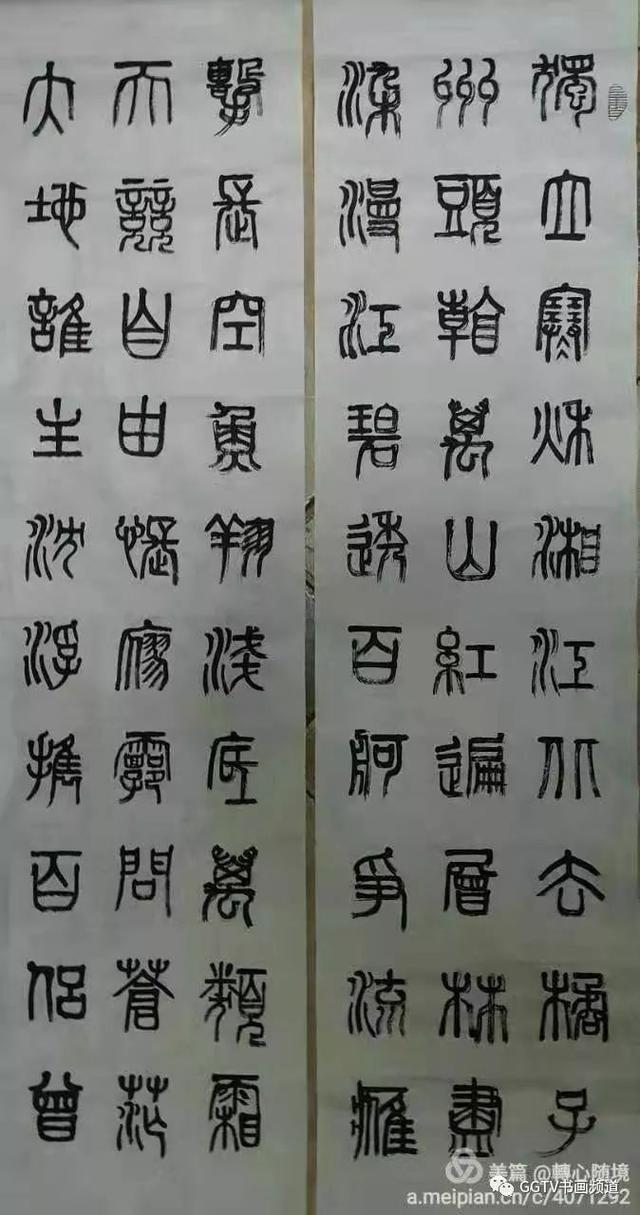 獨立寒秋湘江北去橘子
州頭看萬山紅遍層林盡
染漫江碧透百舸爭流鷹
擊長空魚翔淺底萬類霜
天競自由悵廖霩問蒼茫
大地誰主沈浮攜百侶曾
美篇 @轉心随境
GGTV书画频道
a.meipian.cn/c/4071292